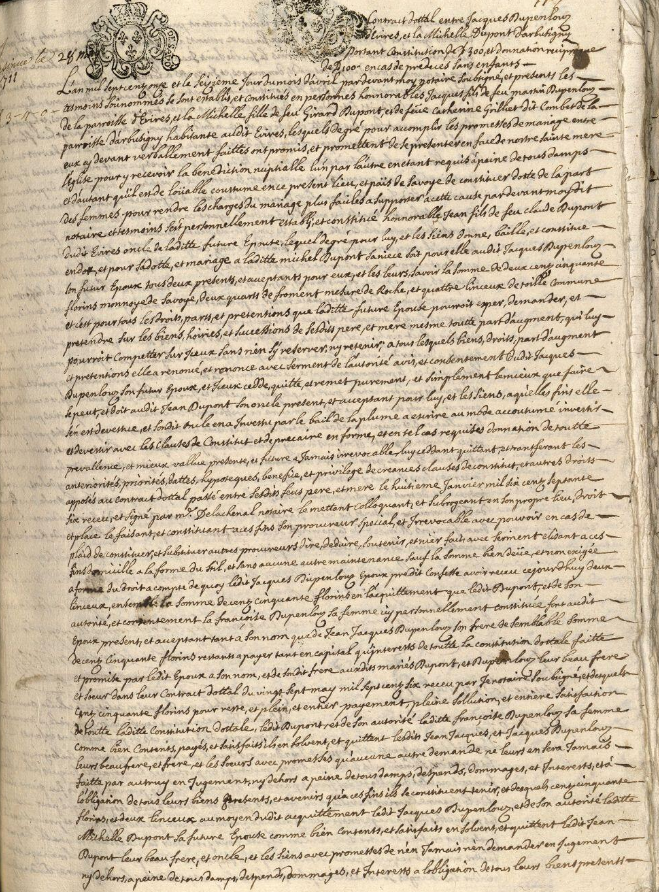 Contract dottal entre Jacques Dupenloup
d'Evires, et la Michelle Dupont d'arbutigny
portant Constitution de 300, et donnation reciproque
de 100 en cas de predeces sans enfants
L'an mil sept cent onze et le seizieme jour du mois d'avril pardevant moy notaire soubsigné, et presents les
tesmoins sousnommés se sont establis, et constitués en personnes honnorable Jacques fils de feu martin Dupenloup
de la parroisse d'Evires, et la Michelle fille de feu Girard Dupont, et de feüe Catherine Grilhet dit Combat de la
parroisse d'arbutigny habitante audit Evires, lesquels de gré pour accomplir les promesses de mariage entre
eux cy devant verballement faittes ont promis, et promettent de se presenter en face de nostre sainte mere
Eglise pour y recevoir la benediction nuptialle l'un par l'autre en estant requis à peine de tous damps
et d'autant qu'il est de loüable coustume en ce present lieu, et païs de Savoye de constituer dotte de la part
des femmes pour rendre les charges du mariage plus faciles a supporter a cette cause par devant moydit
notaire et tesmoins s'est personnellement estably, et constitué honnorable Jean fils de feu Claude Dupont
dudit Evires oncle de laditte future Epouse, lequel de gré pour luy, et les siens donne, baille, et constitue
en dot, et pour sa dotte, et mariage a laditte michel Dupont sa niece soit pour elle audit Jacques Dupenloup
son futur Epoux tous deux presents, et acceptants pour eux, et les leurs, savoir la somme de deux cent cinquante
florins monnoye de Savoye, deux quarts de froment mesure de Roche, et quattre linceux de toille commune
et c'est pour tous les droits, parts, et pretentions que laditte future Epouse pourroit esper, demander, et
pretendre sur les biens, hoiries, et successions de sesdits pere, et mere mesme toutte part d'augment, qui luy
pourroit competter sur iceux sans rien s'y reserver, ny retenir, a tous lesquels biens, droits, part d'augment
et pretentions elle a renoncé, et renonce avec serment de l'autorité avis, et consentement dudit Jacques
Dupenloup son futur Epoux, et iceux cede, quitte, et remet purement, et simplement le mieux que faire
se peut, et doit audit Jean Dupont son oncle present, et acceptant pour luy, et les siens, aquelles fins elle
s'en est devestue, et sondit oncle en a Investu par le bail de la plume a escrire au mode accoutumé investir
et devestir avec les clauses de Constitut, et de precaire en forme, et en tel cas requises donnation de toutte
prevallence, et mieux vallue presente, et future a Jamais irrevocable luy cedant quittant, et transferant les
anteriorités, priorités, dattes, hypoteques, benefice, et privilege de creances clauses de constitut, et autres droits
apposés au contract dottal passé entre sesdits feus pere, et mere le huitieme Janvier mil six cent septante
six receu, et signé par me. Delachenal notaire le mettant colloquant, et subrogeant en son propre lieu, droit
et place le faisant, et constituant a ces fins son procureur special, et irrevocable avec pouvoir en cas de
plaid de constituer, et substituer autres procureurs dire, deduire, soutenir, et nier fait avec serment elisant a ces
fins domicille a la forme du stil, et sans aucune autre maintenance sauf la somme bien deüe, et non exigée
a forme du droit a compte de quoy ledit Jacques Dupenloup Epoux predit Confesse avoir receu cejourd'huy deux
linceux, ensemble la Somme de cent cinquante florins en l'acquittement que ledit Dupont, et de son
autorité, et consentement la françoise Dupenloup sa femme icy personnellement constituée font audit
Epoux present, et acceptant tant a son nom, que de Jean Jacques Dupenloup son frere de semblable Somme
de cent Cinquante florins restants a payer tant en capital qu'interests de toutte la constitution dottale faitte
et promise par ledit Epoux a son nom, et de sondit frere auxdits mariés Dupont, et Dupenloup leur beau frere
et soeur dans leur Contract dottal du vingt sept may mil sept cent six receu par je notaire soubsigné, et desquels
cent cinquante florins pour reste, et plein, et entier payement, pleine solluion, et entiere satisfation
de toutte laditte Constitution dottale, ledit Dupont, et de son autorité laditte françoise Dupenloup sa femme
comme bien Contents, payés, et satisfaits en solvent, et quittent lesdits Jean Jacques, et Jacques Dupenloup
leurs beau frere, et frere, et les soeurs avec promesses qu'aucune autre demande ne leurs en sera Jamais
faitte par autruy en Jugement, ny dehors a peine de tous damps, despends, dommages, et Interests, et à
l'obligation de tous leurs biens presents, et avenirs qu'a ces fins ils se constituent tenir, et desquels cent cinquante
florins, et deux linceux au moyen dudit acquittement ledit Jacques Dupenloup, et de son autorité laditte
Michelle Dupont sa future Epouse comme bien contents, et satisfaits en solvent, et quittent ledit Jean
Dupont leur beau frere, et oncle, et les siens avec promesses de n'en Jamais rien demander en Jugement
ny dehors, a peine de tous damps, despends, dommages, et Interests a l'obligation de tous leurs biens presents